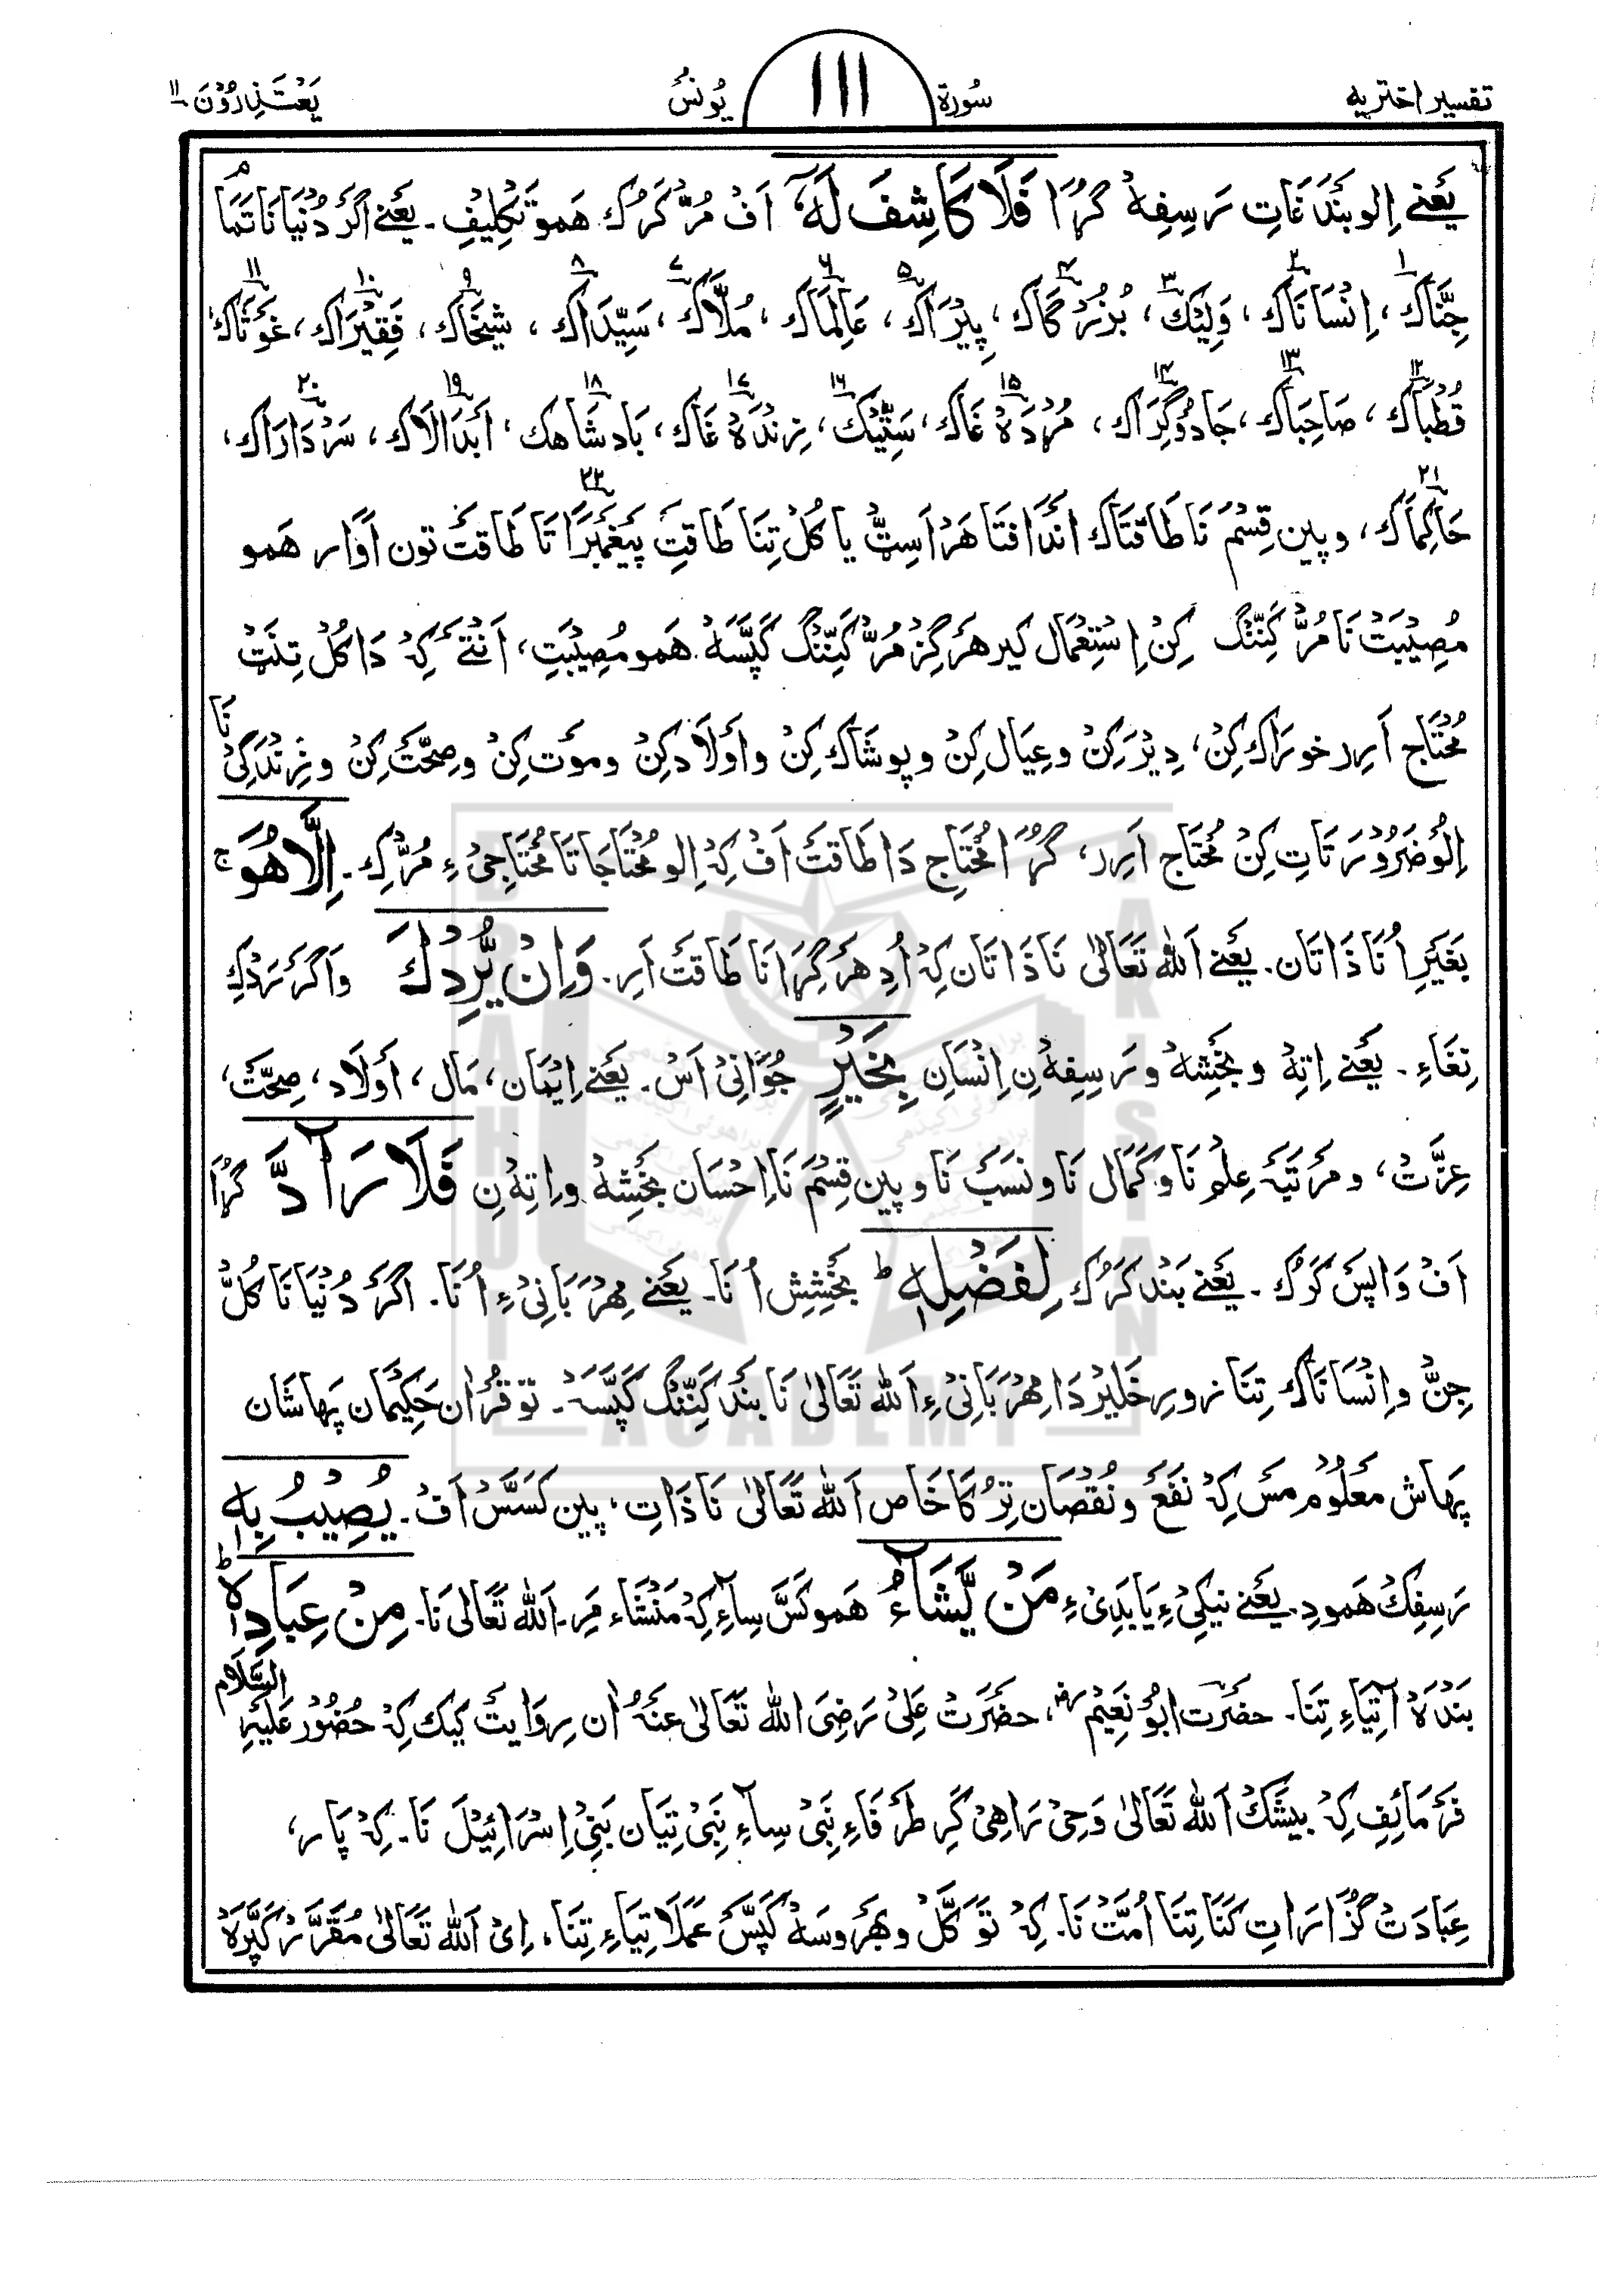 تفسیر اختریه سُورة ۱۱۱ یُونسُ یَعْتَذِرُوْنَ ۱۱
یَعْنے اِلو بَنْدَغَاتِ رَسِفِهْ گُرَا فَلَا کَاشِفَ لَهٗ، اَفْ مُرّ کَرُک هَمو تَکلِیفِ۔ یَعْنے اگر دُنْیَا نَا تَمَام
جِنَّاک، اِنْسَانَاک، وَلِیْک، بُزُرْگاک، پِیْرَاک، عَالِمَاک، مُلَّاک، سَیِّدَاک، شَیْخَاک، فَقِیْرَاک، غَوْثَاک،
قُطْبَاک، صَاحِبَاک، جَادُوْگَرَاک، مُرْدَهْ غَاک، سَتِّیْک، زِنْدَهْ غَاک، بَادشَاهک، اَبْدَالَاک، سَرْدَارَاک،
حَاکِمَاک، و پین قِسْمْ نَا طَاقَتَاک اَنْدَافتَا هَرْ اَسِٹ یا کُلْ تِنَا طَاقَتِ پَیْغَمْبَرَا تَا طَاقَتْ تون اَوَار هَمو
مُصِیْبَتْ نَا مُرّ کَنِّنْگ کِنْ اِسْتِعْمَال کیر هَرْگِزْ مُرّ کَنِّنْگ کَپَّسَهْ هَمو مُصِیْبَتِ، اَنْتَےْ کِهْ دَا کُلْ تِنَتْ
مُحْتَاج اَرِر خوراک کِنْ، دِیْرَ کِنْ و عِیَال کِنْ و پوشَاک کِنْ و اَوْلَاد کِنْ و موْت کِنْ و صِحَّتْ کِنْ و زِنْدَگِیْ نَا
اِلُو ضَرُوْرَتَاتِ کِنْ مُحْتَاج اَرِر، گُرَا مُحْتَاج دَا طَاقَتْ اَفْ کِهْ اِلو مُحْتَاجَاتَا مُحْتَاجِیْ ءِ مُرّ کِ۔ اِلَّا هُوَ ج
بَغَیْرِ اُنَا ذَاتَان۔ یَعْنے اَللّٰهُ تَعَالٰی نَا ذَاتَان کِهْ اُدِ هَرْ گِرَا نَا طَاقَتْ اَرِ۔ وَاِنْ یُّرِدْكَ وَاگَرْ رَدْکِ
نِغَاءِ۔ یَعْنے اِتِهْ و بَخْشِهْ و رَسِفِهْ نِ اِنْسَان بِخَیْرٍ جُوَانِیْ اَسْ۔ یَعْنے اِیْمَان، مَال، اَوْلَاد، صِحَّتْ،
عِزَّتْ، و مَرْتَبَهْ عِلْمْ نَا و کَمَال نَا و نَسَبْ نَا و پین قِسْمْ نَا اِحْسَان بَخْشِهْ و اِتِهْ نِ فَلَا رَآدَّ گُرَا
اَفْ وَاپَسْ کَرُک۔ یَعْنے بَنْد کَرُک لِفَضْلِهٖ ط بَخْشِشِ اُنَا۔ یَعْنے مِهْرَبَانِیْ ءِ اُنَا۔ اگَرْ دُنْیَا نَا کُلّ
جِنّ و اِنْسَانَاک تِنَا زورِ خَلِیرْ دَا مِهْرَبَانِیْ ءِ اَللّٰه تَعَالٰی نَا بَنْد کَنِّنْگ کَپَّسَهْ۔ توْ قُرْاٰن حَکِیْمَان پَهَاشَان
پَهَاش مَعْلُوْم مَسْ کِهْ نَفَعْ و نُقْصَان تِرُکَا خَاص اَللّٰه تَعَالٰی نَا ذَاتِ، پین کَسَسْ اَفْ۔ یُصِیْبُ بِهٖ
رَسِفِکْ هَمودِ۔ یَعْنے نیکیْ ءِ یَا بَدِیْ ءِ مَنْ یَّشَآءُ هَمو کَسَّ سِاءِ کِهْ مَنْشَاء مَرِ۔ اَللّٰه تَعَالٰی نَا۔ مِنْ عِبَادِهٖ ط
بَنْدَهْ اٰتِیَاءِ تِنَا۔ حضَرت اَبُوْ نَعِیْمْ رح، حضَرَتْ عَلِیْ رَضِیَ اللّٰه تَعَالٰی عَنْهُ اُن رِوَایَتْ کیک کِهْ حُضُوْر عَلَیْهِ السَّلَام
فَرْمَائِفِ کِهْ بیشَکْ اَللّٰه تَعَالٰی وَحِیْ رَاهِیْ کَرِ طَرْفَاءِ نَبِیْ سِاءِ نَبِیْ تِیَان بَنِیْ اِسْرَائِیْلْ نَا۔ کِهْ پَار،
عِبَادَتْ گُزَارَاتِ کَنَا تِنَا اُمَّتْ نَا۔ کِهْ تَوَکَّلْ و بَهْرَوسَهْ کَپَّسْ عَمَلَا تِیَاءِ تِنَا، اِیْ اَللّٰه تَعَالٰی مُقَرَّرْ کَپَّرَهْ
BRAHUI ACADEMY PAKISTAN